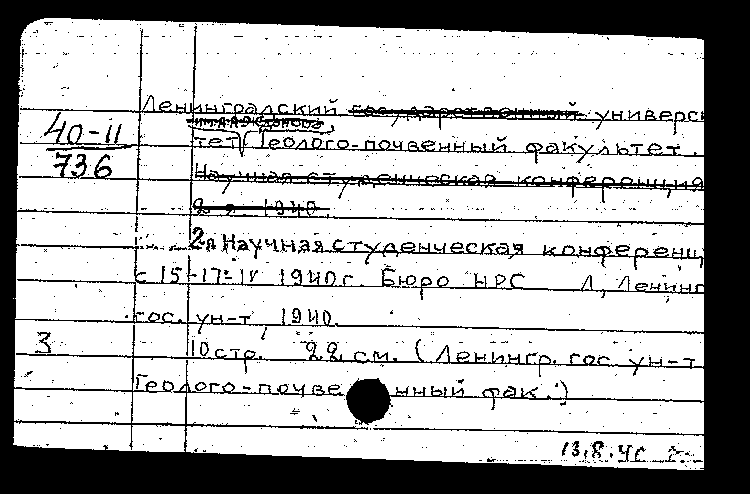 Ленинградский государственный универс
40-11
736
тет Геолого-почвенный факультет.
Научная студенческая конференция
2-я 1940.
2я Научная студенческая конференц
с 15-17-IV 1940г. Бюро НРС Л, Ленинг
гос. ун-т, 1940.
3
10 стр. 22 см. (Ленингр. гос. ун-т
Геолого-почвенный фак.)
13.8.40